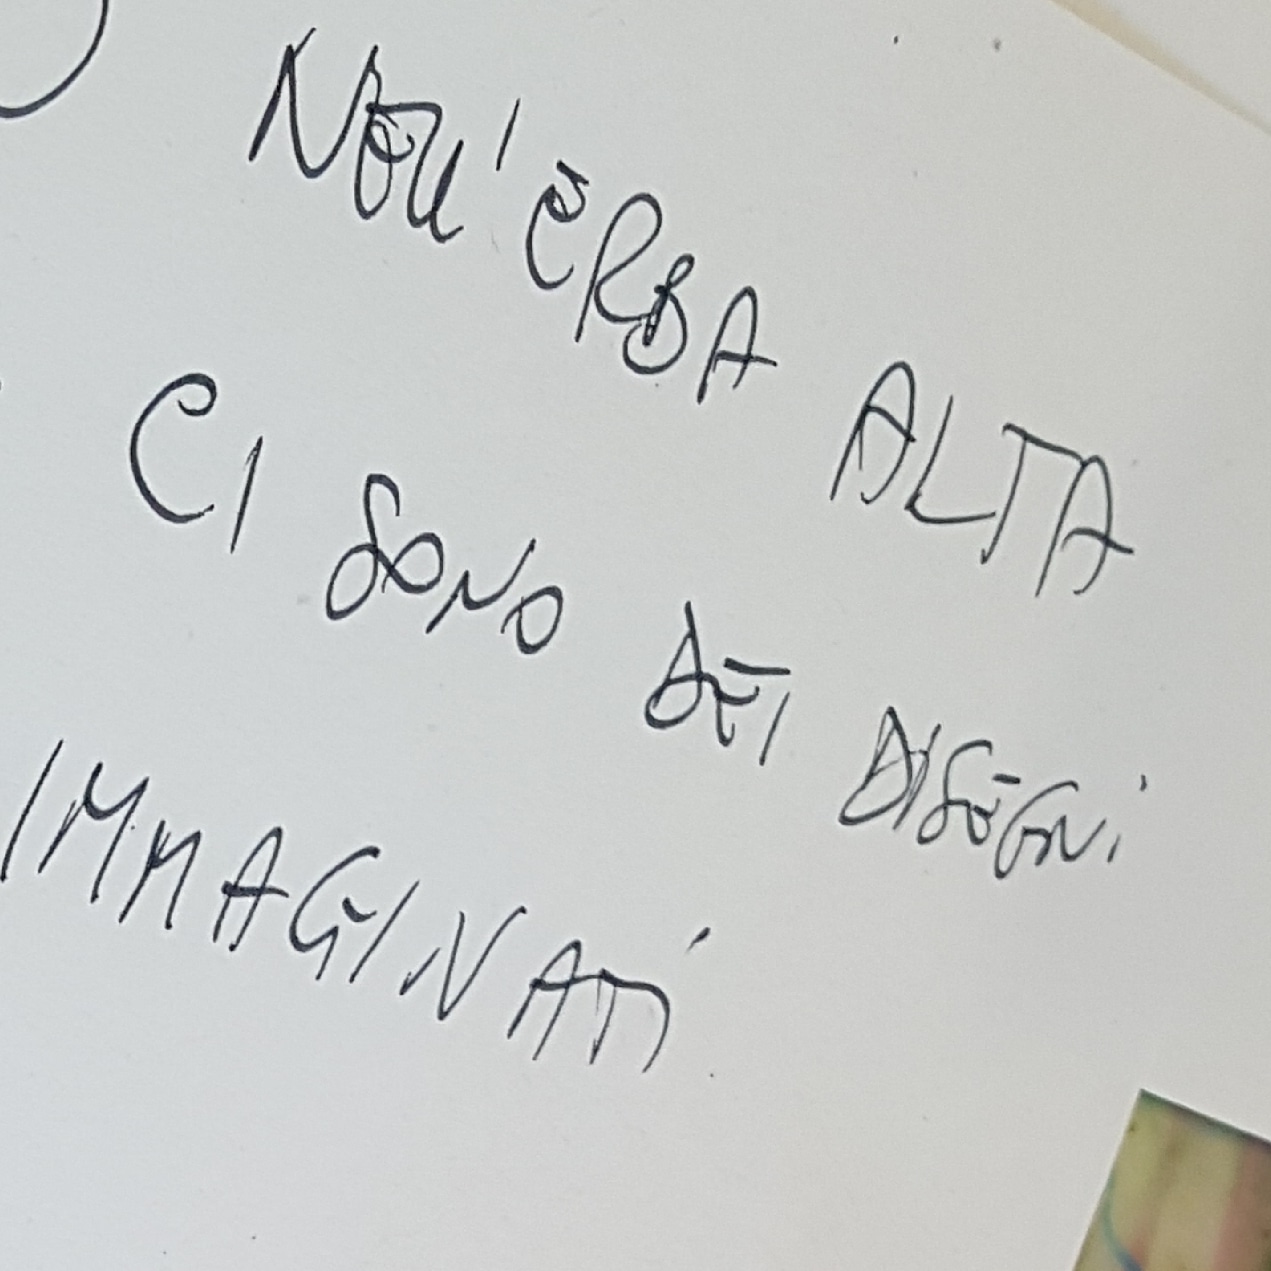 NELL'ERBA ALTA
CI SONO DEI DISEGNI
IMMAGINATI